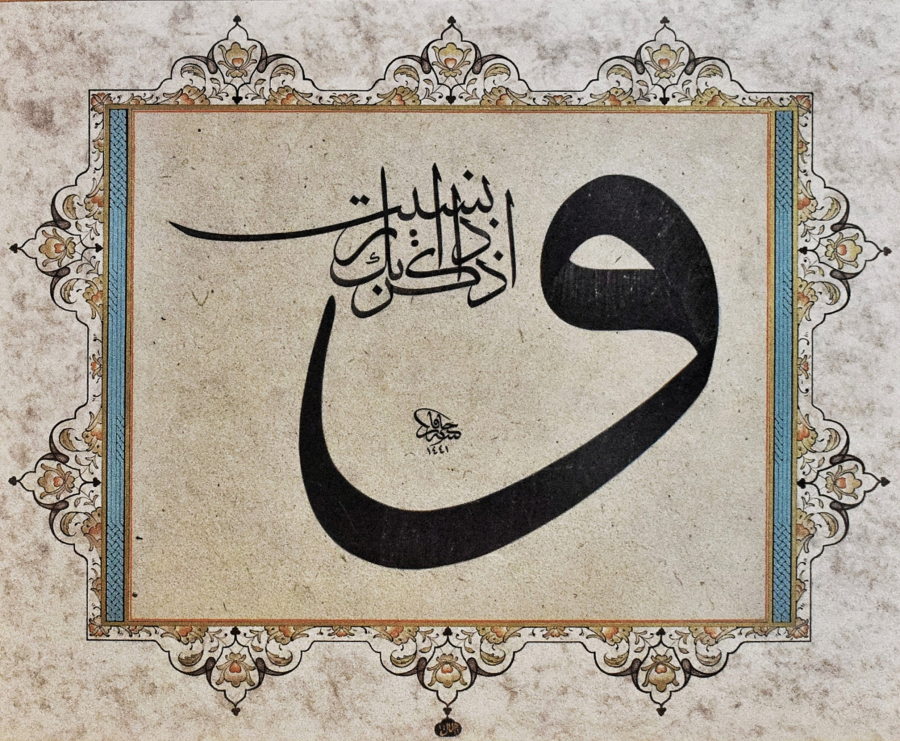 و اذكر ربك اذا نسيت
١٤٤١